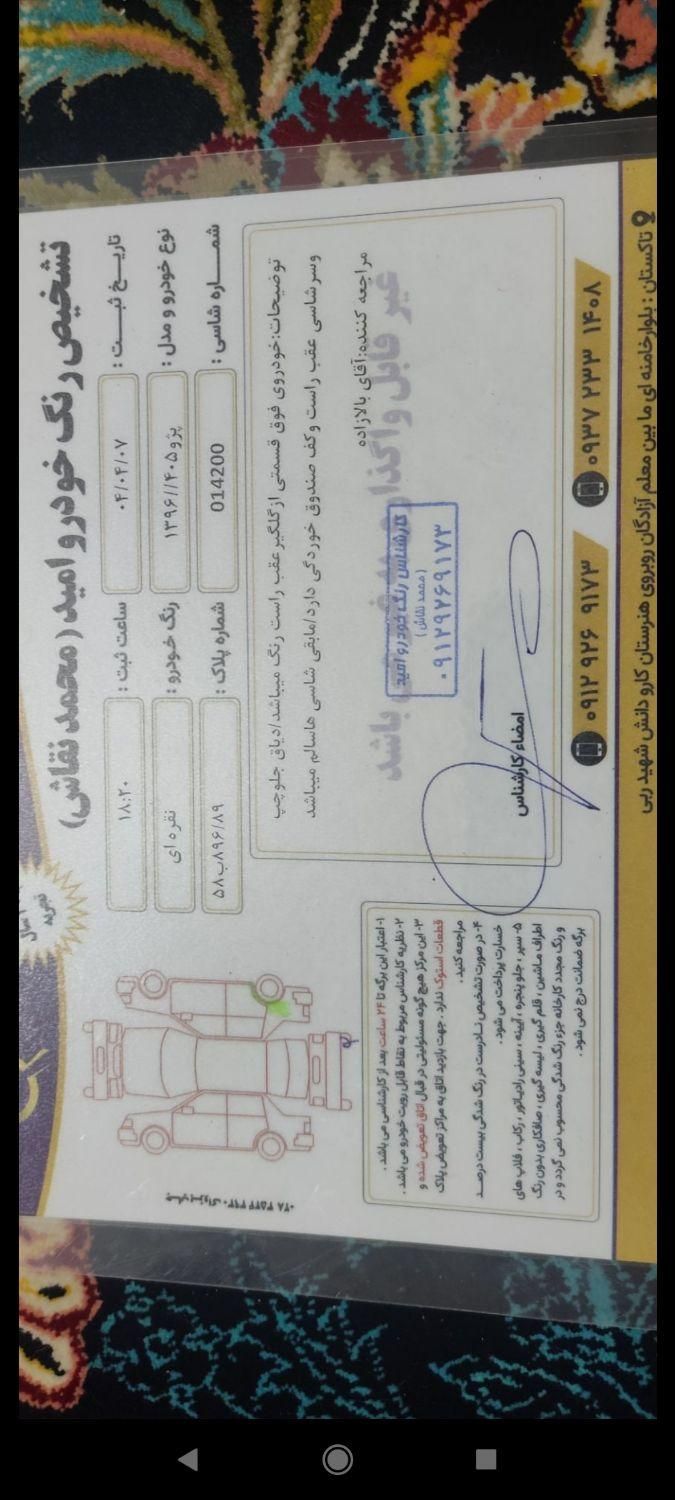 تشخیص رنگ خودرو امید (محمد نقاش)
سال
تجربه
تاریخ ثبت : ۰۴/۰۴/۰۷
ساعت ثبت : ۱۸:۲۰
نوع خودرو و مدل : پژو۴۰۵//۱۳۹۶
رنگ خودرو : نقره ای
شماره شاسی : 014200
شماره پلاک : ۵۸ب۸۹۶/۸۹
توضیحات:خودروی فوق قسمتی ازگلگیرعقب راست رنگ میباشد/دیاق جلوچپ
وسرشاسی عقب راست وکف صندوق خوردگی دارد/مابقی شاسی هاسالم میباشد
مراجعه کننده:آقای بالازاده
غیر قابل واگذاری باشد
کارشناس رنگ خودرو امید
(محمد نقاش)
۰۹۱۲۹۲۶۹۱۷۳
امضاء کارشناس
۱- اعتبار این برگه تا ۲۴ ساعت بعد از کارشناسی می باشد .
۲- نظریه کارشناس مربوط به نقاط قابل رویت خودرو می باشد .
۳- این مرکز هیچ گونه مسئولیتی در قبال اتاق تعویض شده و
قطعات استوک ندارد . جهت بازدید اتاق به مراکز تعویض پلاک
مراجعه کنید .
۴- در صورت تشخیص نادرست در رنگ شدگی بیست درصد
خسارت پرداخت می شود .
۵- سپر ، جلو پنجره ، آیینه ، سینی رادیاتور ، رکاب ، قلاب های
اطراف ماشین ، قلم گیری ، لیسه گیری ، صافکاری بدون رنگ
و رنگ مجدد کارخانه جزء رنگ شدگی محسوب نمی گردد و در
برگه ضمانت درج نمی شود .
۰۹۱۲ ۹۲۶ ۹۱۷۳
۰۹۳۷ ۲۳۳ ۱۴۰۸
تاکستان : بلوارخامنه ای ما بین معلم آزادگان روبروی هنرستان کارو دانش شهید ربی